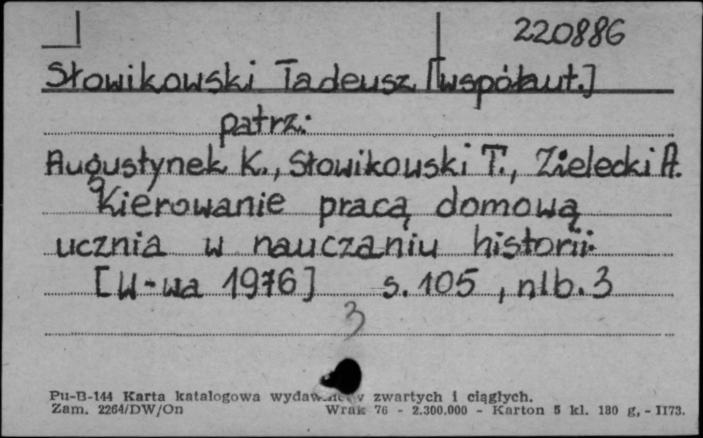 220886
Słowikowski Tadeusz [współaut.]
patrz:
Augustynek K., Słowikowski T., Zielecki A.
Kierowanie pracą domową
ucznia w nauczaniu historii.
[W-wa 1976] s. 105, nlb. 3
3
Pu-B-144 Karta katalogowa wydawnictw zwartych i ciągłych.
Zam. 2264/DW/On Wrak 76 - 2.300.000 - Karton 5 kl. 180 g, - II73.